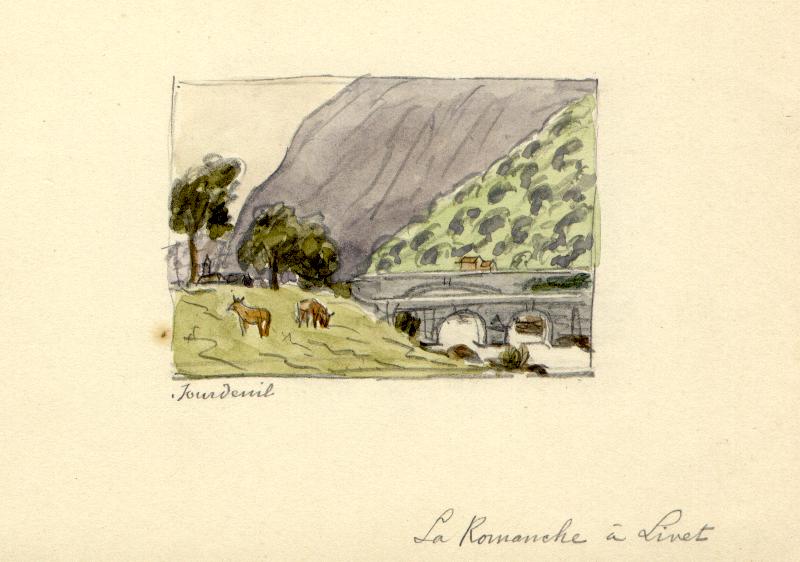 Jourdeuil
La Romanche à Livet